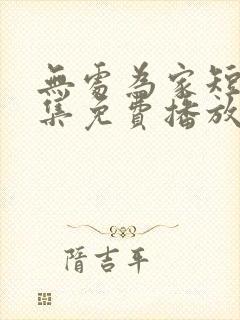 無處為家短
集免費播放
隋吉平